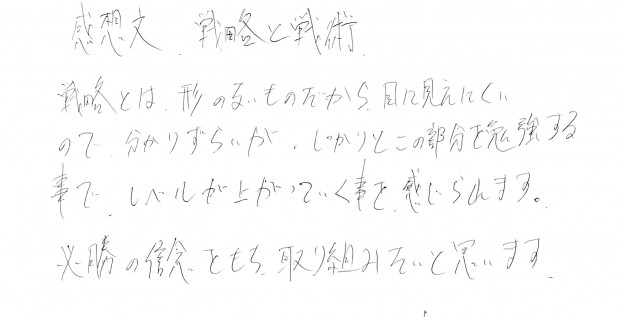 感想文 戦略と戦術
戦略とは、形のないものだから、目に見えにくい
ので、分かりずらいが、しっかりとこの部分を勉強する
事で、レベルが上がっていく事を、感じられます。
必勝の信念をもち、取り組みたいと思います。